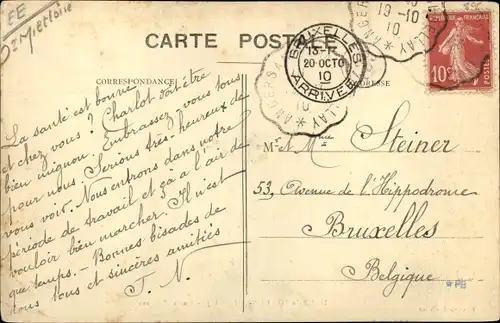 EE
CARTE POSTALE
CORRESPONDANCE
ADRESSE
BRUXELLES
13-
20 OCTO
10
ARRIVEE
ANGERS
19-10
10
10c
La santé est bonne
et chez vous? Charlot doit être
bien mignon. Embrassez vous tous
pour nous. Serions très heureux de
vous voir. Nous entrons dans notre
période de travail et ça a l'air de
vouloir bien marcher. Il n'est
que temps. Bonnes bisades de
tous tous et sincères amitiés
J. N.
M. et Mme Steiner
53, Avenue de l'Hippodrome
Bruxelles
Belgique
*PB